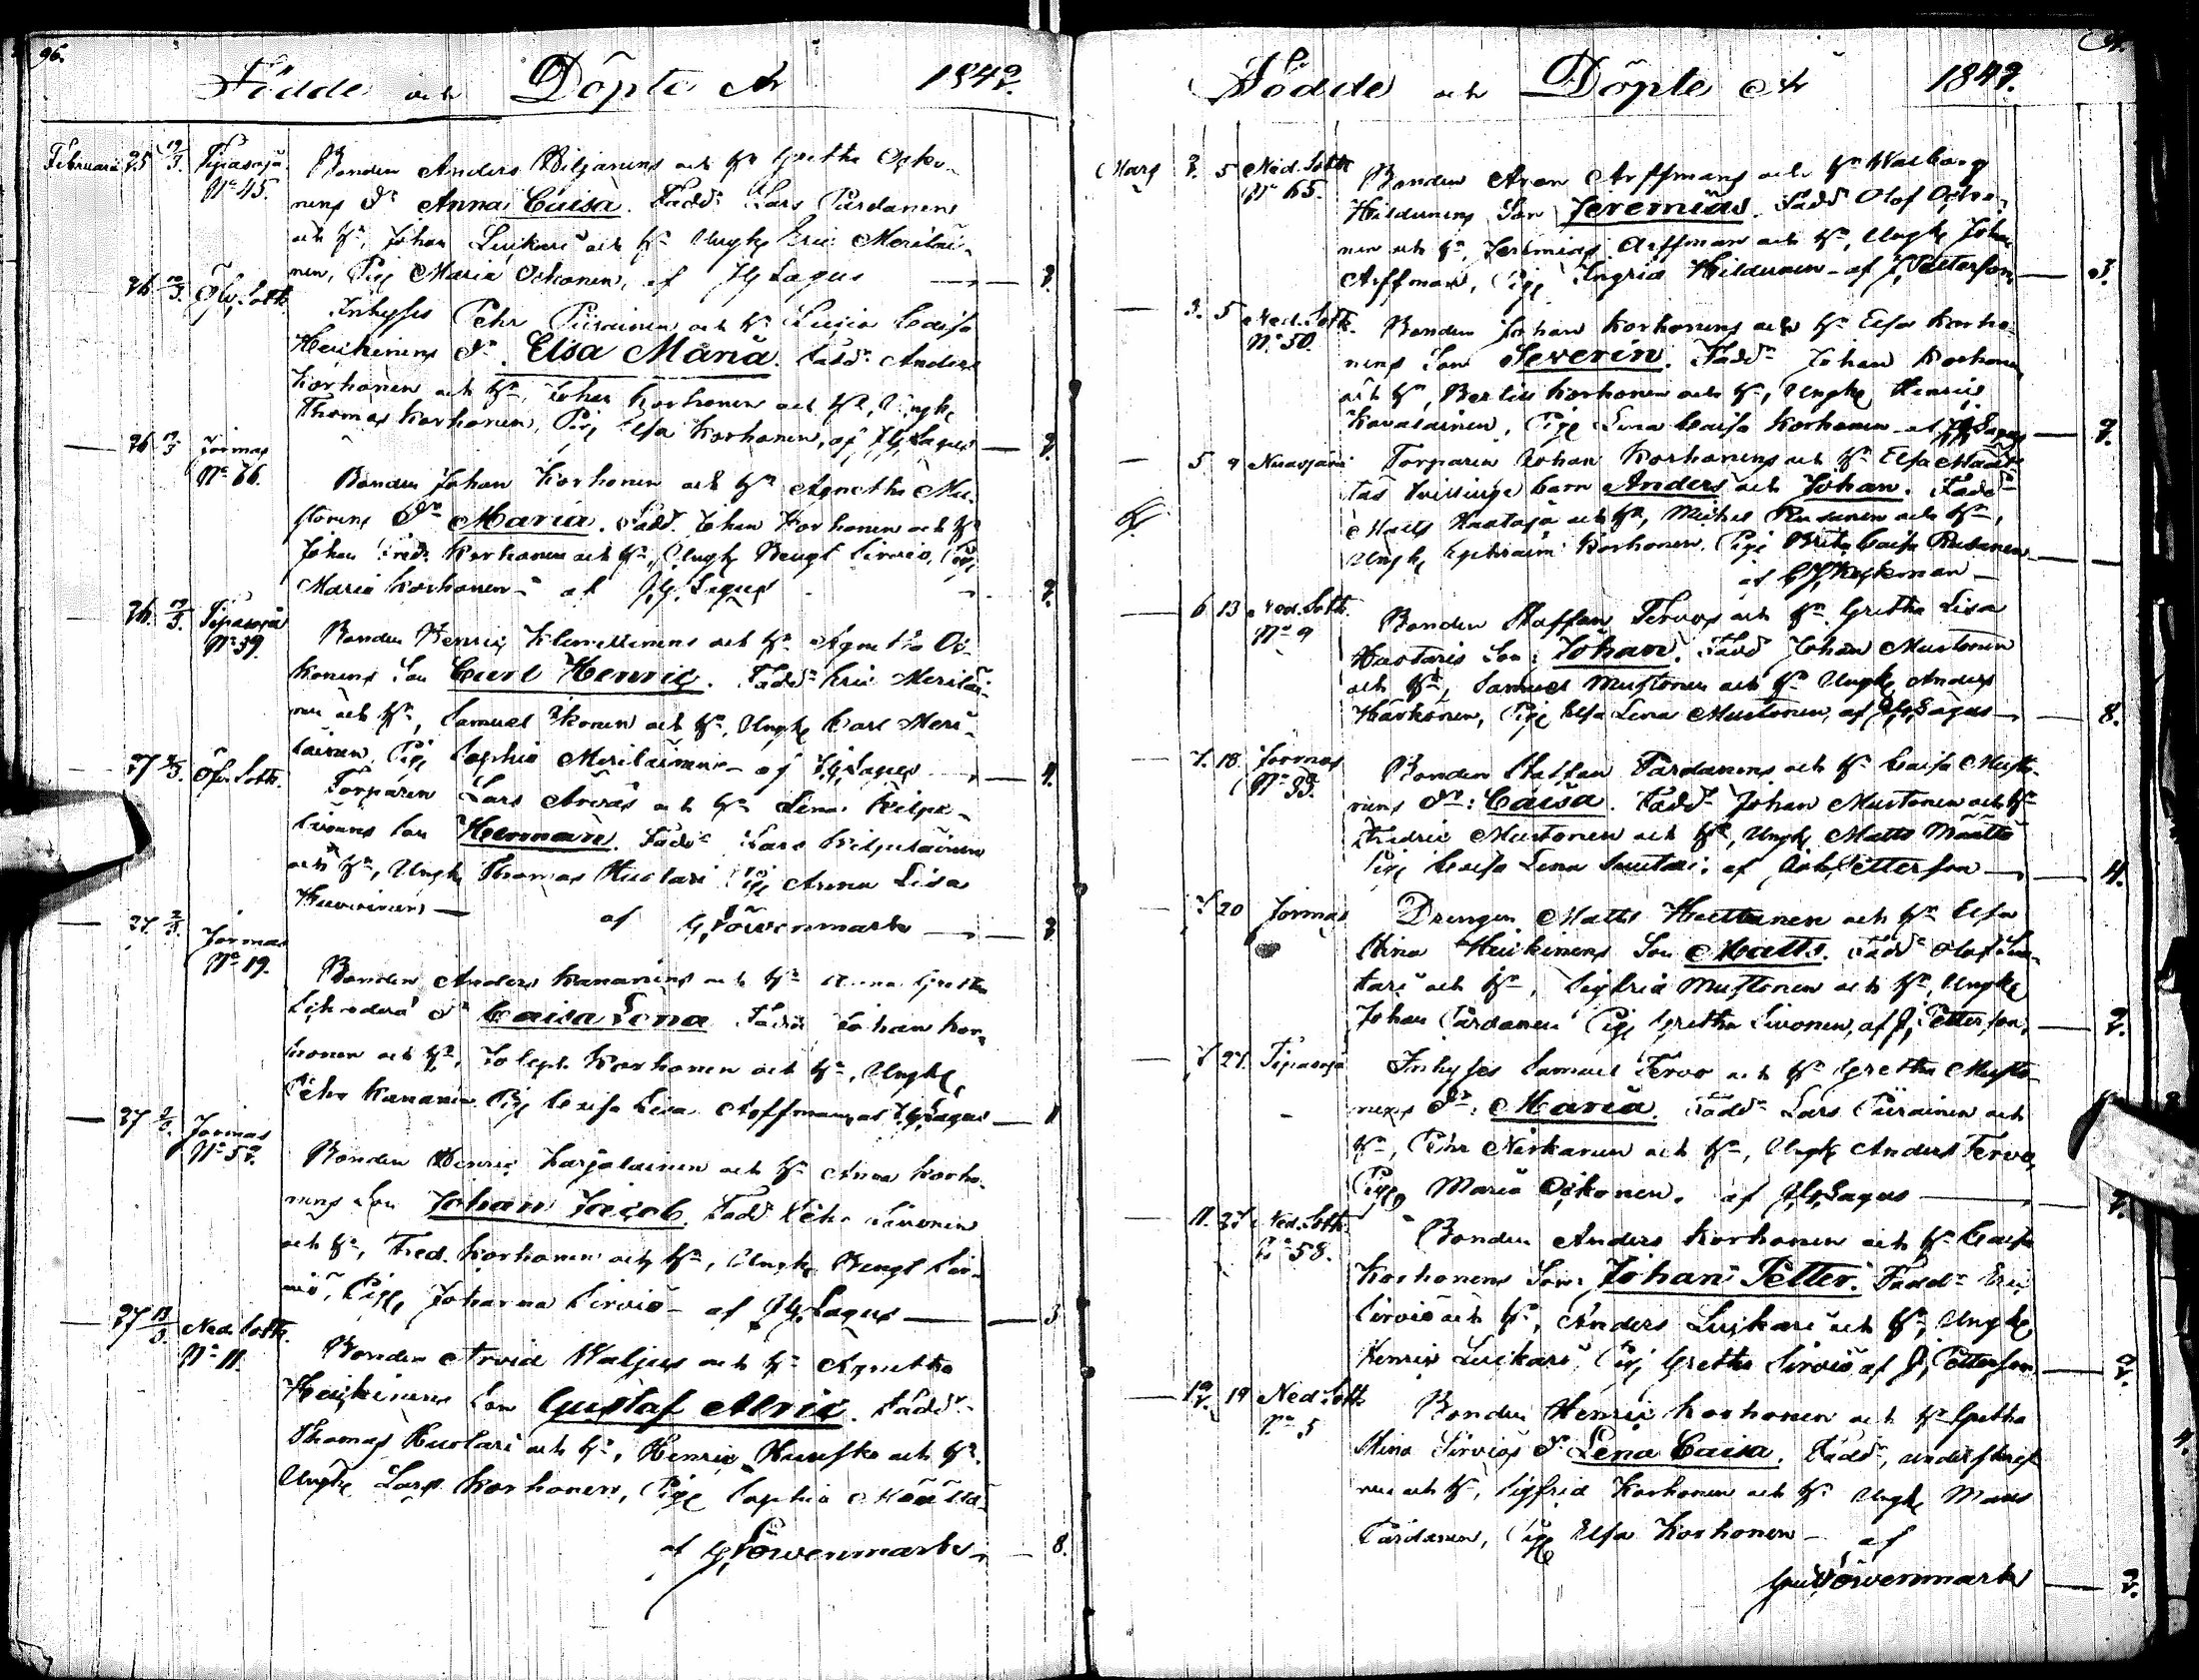 96.
Födde och Döpte År 1842.
Februarii 25 12/3. Tipasoja Bonden Anders Väljanens och h:u Gretha Ocko-
N:o 45. nens D:r Anna Caisa. Fadd: Lars Pardanen
och h:u, Johan Luikari och h:u Ungk Eric Meriläi-
nen, Pig Maria Ockonen, af J G Lagus — 2.
26 12/3. Öfv. Sotk. Inhyses Pehr Piirainen och h:u Luisa Caisa
Heikinens D:r Elsa Maria. Fadd: Anders
Korhonen och h:u, Johan Korhonen och h:u, Ungk
Thomas Korhonen, Pig Elsa Korhonen, af J G Lagus — 2.
— 26 12/3 Jormas
N:o 66. Bonden Johan Korhonen och h:u Agnetha Mu-
stonens D:r Maria. Fadd. Johan Korhonen och h:u
Johan Fred. Korhonen och h:u, Ungk Bengt Sirviö, Pig
Maria Korhonen – af J. G. Lagus 2.
— 26. 12/3. Tipasoja
N:o 39. Bonden Henric Klemettinens och h:u Agnetha Oc-
konens Son Carl Henric. Fadd: Eric Meriläi-
nen och h:u, Samuel Ikonen och h:u, Ungk Carl Meri-
läinen, Pig Sophia Meriläinen – af J G Lagus — 4.
— 27 2/3. Öfv. Sotk. Torparen Lars Arvas och h:u Lena Kilpe-
läinens Son Herman. Fadd: Lars Kilpeläinen
och h:u, Ungk Thomas Huotari Pig Anna Lisa
Huovinen — af G Löwenmark — 2.
— 27. 2/3. Jormas
N:o 19. Bonden Anders Kananens och h:u Anna Gretha
D:r Caisa Lena Fadd: Johan Kor-
honen och h:u, Joseph Korhonen och h:u, Ungk,
Pehr Kananen Pig Caisa Lisa Arffman, af J G Lagus — 1
— 27 2/3. Jormas
N:o 52. Bonden Henric Karjalainen och h:u Anna Korho-
nens Son Johan Jacob. Fadd: Pehr Sivonen
och h:u, Fred. Korhonen och h:u, Ungk Bengt Sir-
viö, Pig, Johanna Sirviö – af J G Lagus — 3
— 27 13/3. Ned. Sotk.
N:o 11. Bonden Arvid Waljus och h:u Agnetha
Heikinens Son Gustaf Alric. Fadd:
Thomas Huotari och h:u, Henric Hauska och h:u.
Ungk Lars Korhonen, Pig Sophia Määttä
af G Löwenmark – 8.
Födde och Döpte År 1842.
Mars 2. 5 Ned. Sotk Bonden Aron Arffmans och h:u Walborg
N:o 65. Hildunens Son Jeremias. Fadd: Olof Ocko-
nen och h:u, Jeremias Arffman och h:u, Ungk Johan
Arffman, Pig Ingrid Hildunen – af J Petterson — 3.
— 3. 5 Ned. Sotk. Bonden Johan Korhonens och h:u Elsa Korho-
N:o 50. nens Son Severin. Fadd: Johan Korhonen
och h:u, Bertill Korhonen och h:u, Ungk Henric
Kovalainen, Pig Lena Caisa Korhonen – af J G Lagus — 2.
— 5 9 Nuasjärvi Torparen Johan Korhonens och h:u Elsa Määt-
täs Tvillinge barn Anders och Johan. Fadd:
Matts Haataja och h:u, Michel Rusanen och h:u,
Ungk Ephraim Korhonen. Pig Brita Caisa Rusanen
af C J Heickman —
— 6 13 Ned. Sotk.
N:o 9 Bonden Staffan Tervos och h:u Gretha Lisa
Huotaris Son: Johan. Fadd: Johan Mustonen
och h:u, Samuel Mustonen och h:u Ungk Anders
Härkönen, Pig Elsa Lena Mustonen, af J G Lagus — 8.
— 7. 18. Jormas
N:o 33. Bonden Staffan Pardanens och h:u Caisa Musto-
nens D:r: Caisa. Fadd: Johan Mustonen och h:u
Fredric Mustonen och h:u, Ungk Matts Määttä
Pig Caisa Lena Suutari: af Joh. Petterson — 4.
— 7 20 Jormas Drengen Matts Huttunen och h:u Elsa
Stina Heikinens Son Matts. Fadd: Olof Suu-
tari och h:u, Sigfrid Mustonen och h:u, Ungk
Johan Pardanen Pig Gretha Sivonen, af J, Petterson, — 2.
— 7 27. Tipasoja Inhyses Samuel Tervo och h:u Gretha Musto-
nens D:r: Maria. Fadd: Lars Piirainen och
h:u, Pehr Närhanen och h:u, Ungk Anders Tervo,
Pig, Maria Ockonen. af J G Lagus — 2.
— 11. 27 Ned. Sotk.
N:o 58. Bonden Anders Korhonen och h:u Caisa
Korhonens Son: Johan Petter. Fadd: Eric
Sirviö och h:u, Anders Luikari och h:u, Ungk
Henric Luikari, Pig Gretha Sirviö af J, Petterson — 2.
— 12. 19 Ned. Sotk.
N:o 5 Bonden Henric Korhonen och h:u Gretha
Stina Sirviös D:r Lena Caisa. Fadd:,
och h:u, Sigfrid Korhonen och h:u Ungk Mans
Pardanen, Pig Elsa Korhonen – af
Löwenmark — 2.